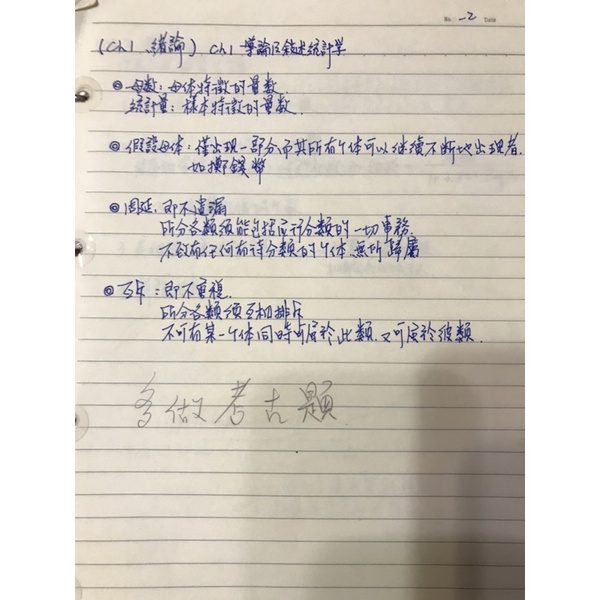 No. -2 Date
(Ch1、緒論) Ch1 導論及敍述統計學
◎母數：母体特徵的量數.
統計量：樣本特徵的量數.
◎假設母体：僅出現一部分而其所有个体可以继續不断地出現者.
如擲錢幣
◎周延：即不遺漏
所分各類須能包括所分類的一切事務.
不致有任何有待分類的个体.無所歸屬
◎互斥：即不重複.
所分各類須互相排斥
不可有某一个体同時可屬於此類.又可屬於彼類.
多做考古題